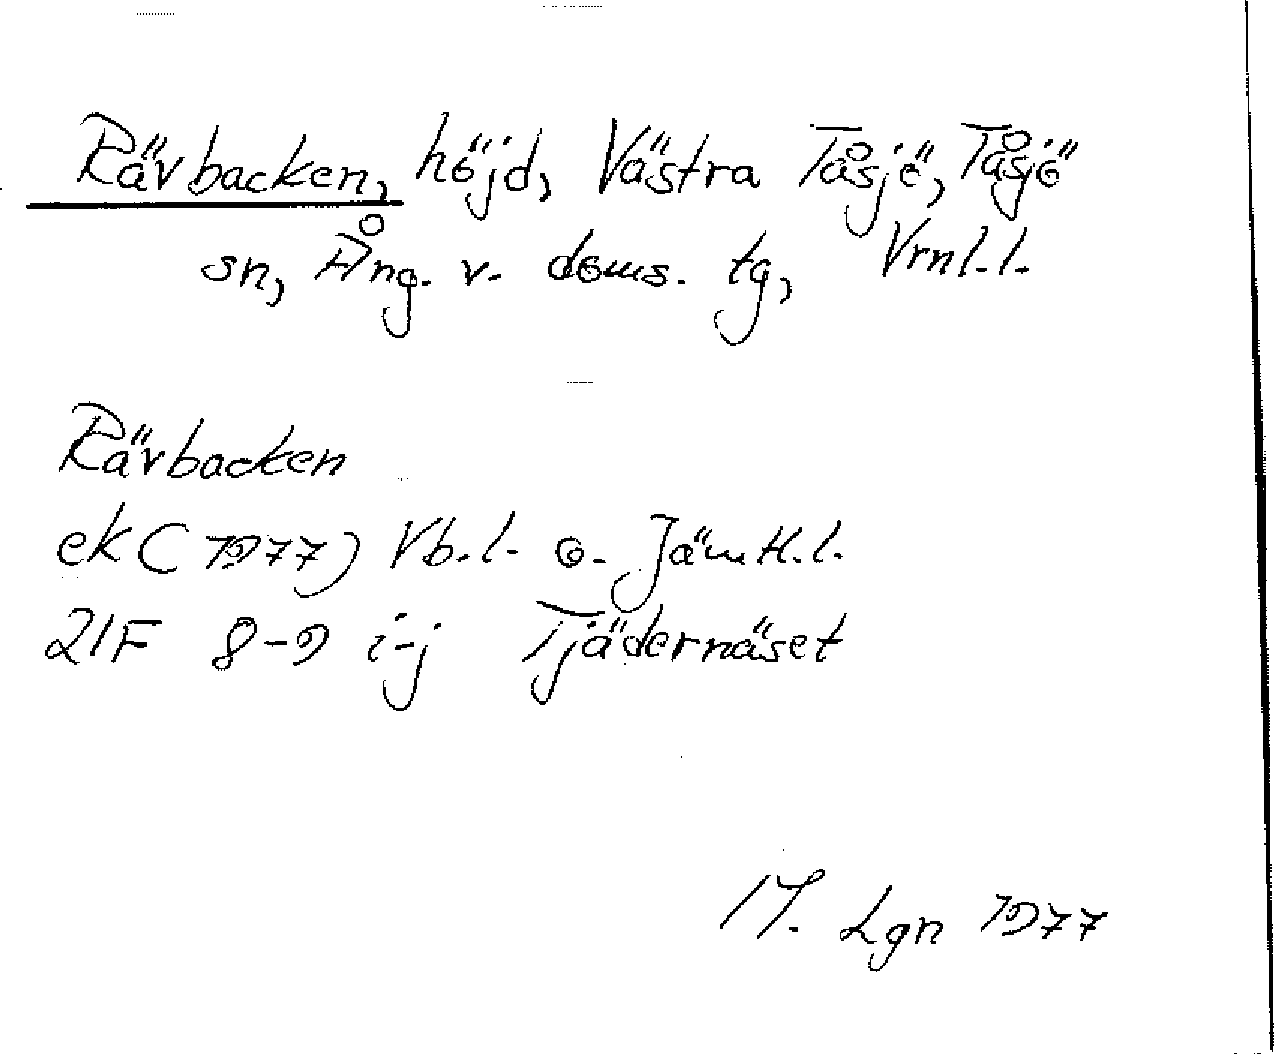 Rävbacken, höjd, Västra Tåsjö, Tåsjö
sn, Ång. v. doms. tg, Vrnl.l.
Rävbacken
ek (1977) Vb.l. o. Jämtl.l.
21F 8-9 i-j Tjädernäset
Lgn 1977